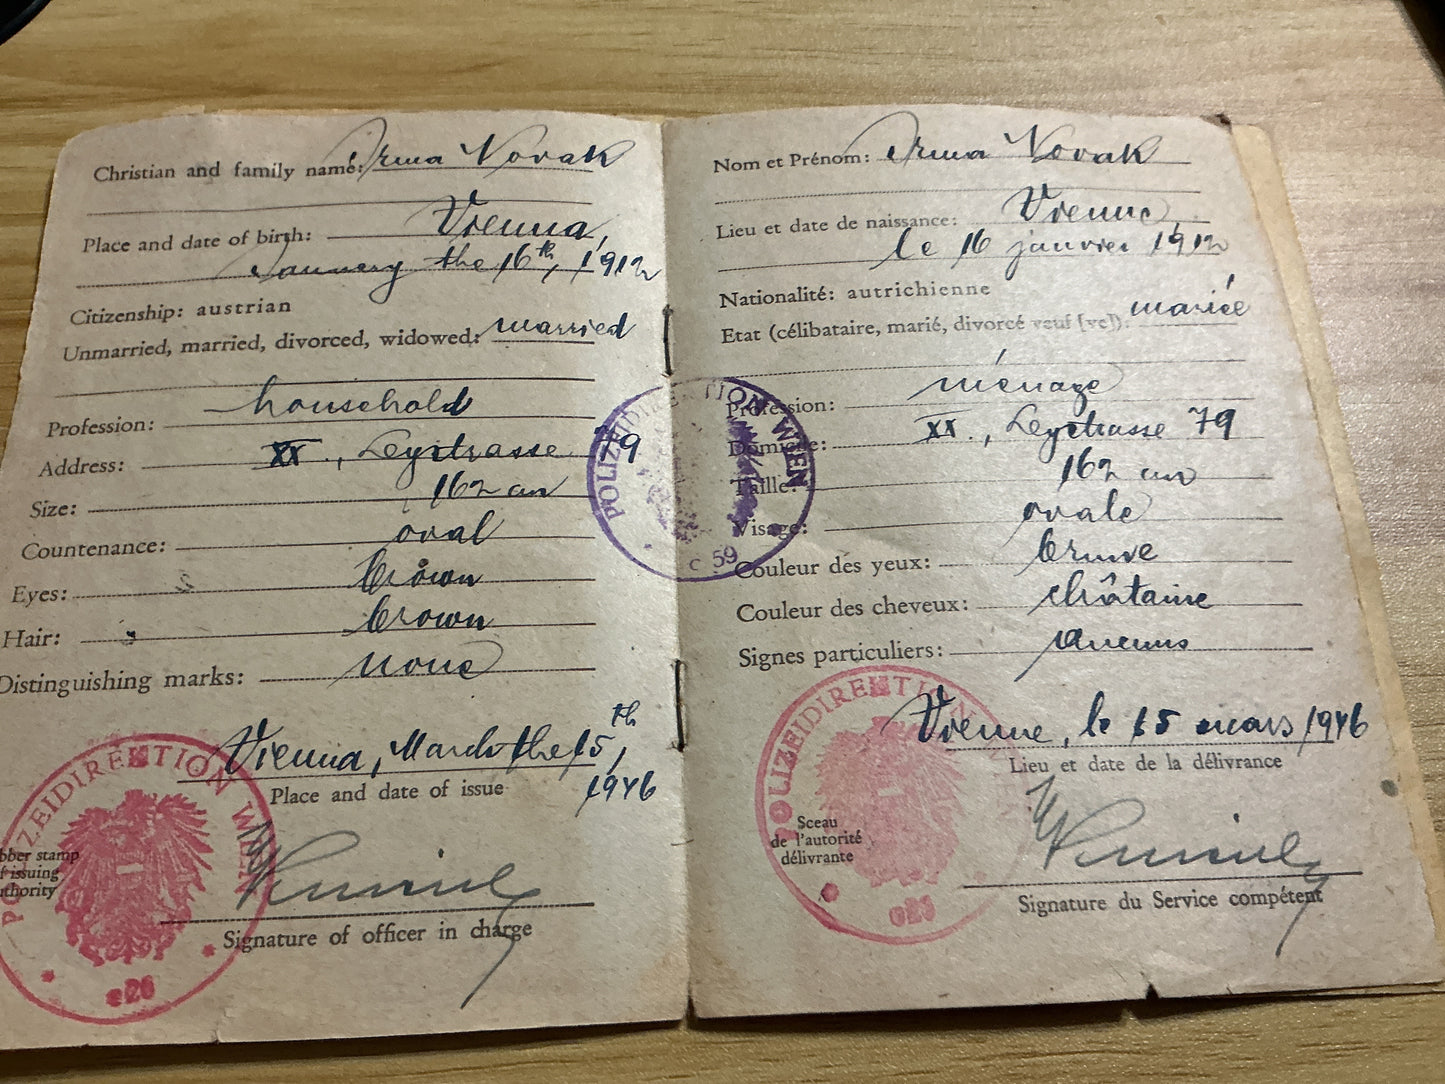 Christian and family name: Irma Novak
Place and date of birth: Vienna,
January the 16th, 1912
Citizenship: austrian
Unmarried, married, divorced, widowed: married
Profession: household
Address: XX., Leystrasse 79
Size: 162 cm
Countenance: oval
Eyes: brown
Hair: brown
Distinguishing marks: none
Vienna, March the 15th,
1946
Place and date of issue
bber stamp
f issuing
thority
Signature of officer in charge
POLIZEIDIREKTION WIEN
e26
POLIZEIDIREKTION WIEN
C 59
Nom et Prénom: Irma Novak
Lieu et date de naissance: Vienne,
le 16 janvier 1912
Nationalité: autrichienne
Etat (célibataire, marié, divorcé veuf [ve]): mariée
Profession: ménage
Domicile: XX., Leystrasse 79
Taille: 162 cm
Visage: ovale
Couleur des yeux: brune
Couleur des cheveux: châtaine
Signes particuliers: aucuns
Vienne, le 15 mars 1946
Lieu et date de la délivrance
Sceau
de l'autorité
délivrante
Signature du Service compétent
POLIZEIDIREKTION